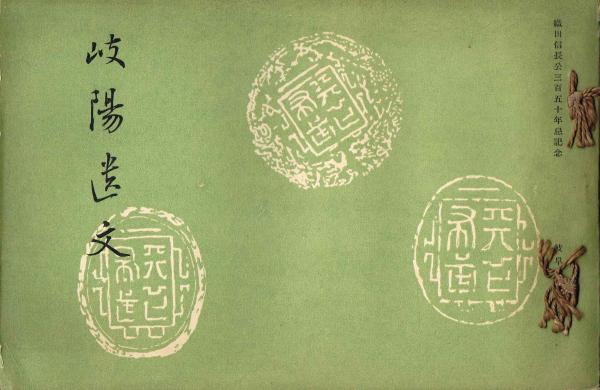 織田信長公三百五十年忌記念
岐阜
岐陽遺文
天下布武
天下布武
天下布武